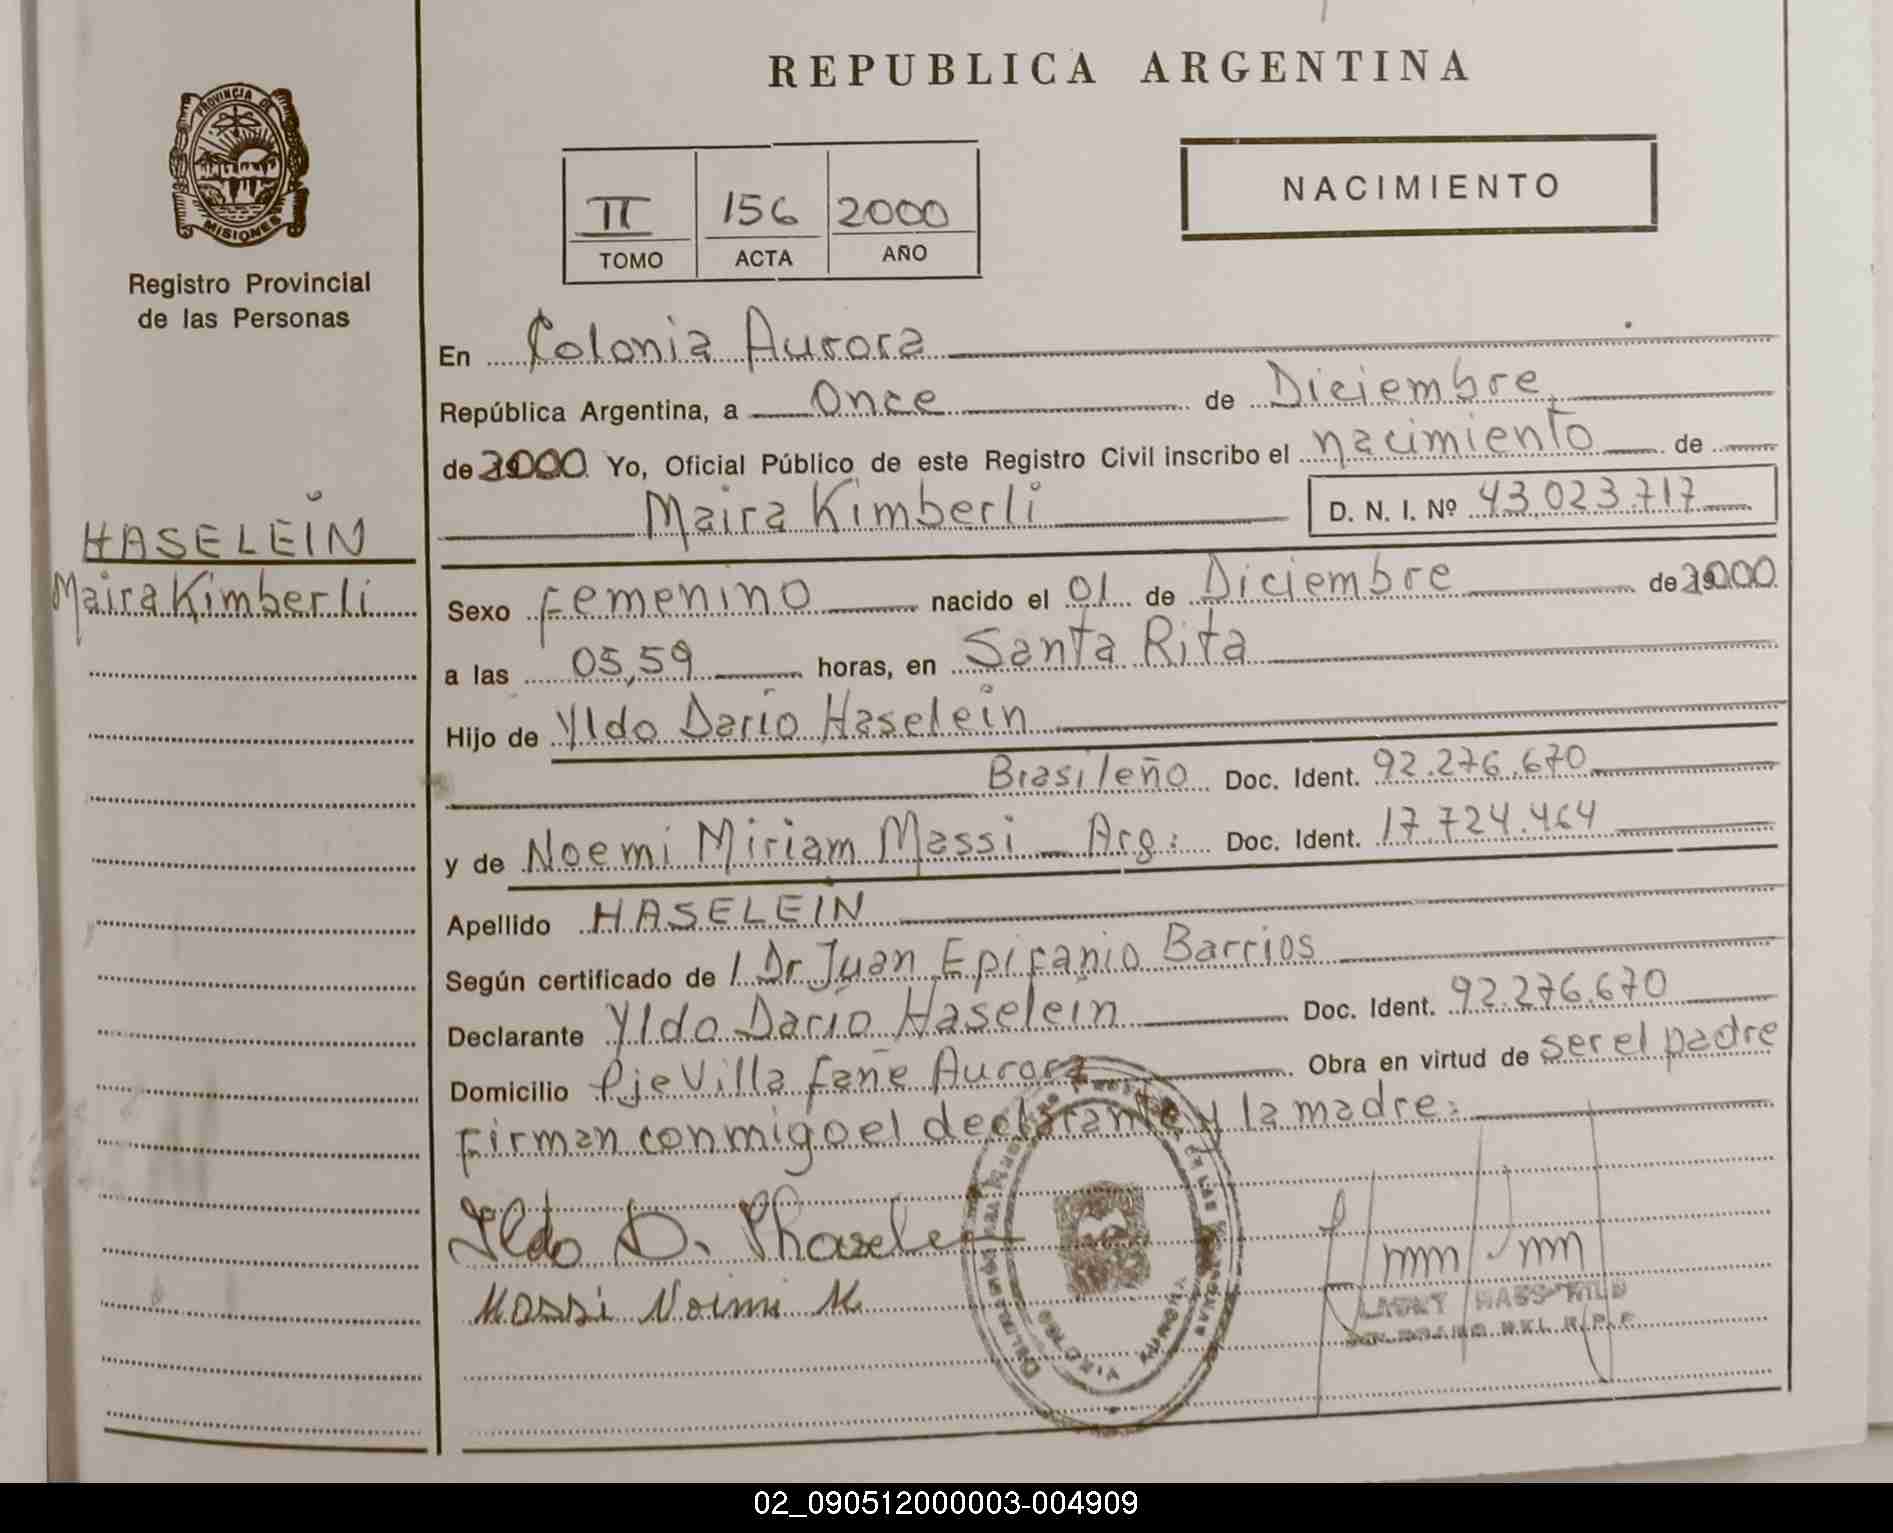 REPUBLICA ARGENTINA
PROVINCIA DE
MISIONES
Registro Provincial
de las Personas
II 156 2000
TOMO ACTA AÑO
NACIMIENTO
En Colonia Aurora
República Argentina, a Once de Diciembre
de 2000 Yo, Oficial Público de este Registro Civil inscribo el nacimiento de
Maira Kimberli D. N. I. Nº 43.023.717
HASELEIN
Maira Kimberli
Sexo Femenino nacido el 01 de Diciembre de 2000
a las 05,59 horas, en Santa Rita
Hijo de Yldo Dario Haselein
Brasileño Doc. Ident. 92.276.670
y de Noemi Miriam Massi Arg: Doc. Ident. 17.724.464
Apellido HASELEIN
Según certificado de / Dr Juan Epifanio Barrios
Declarante Yldo Dario Haselein Doc. Ident. 92.276.670
Domicilio Pje Villa Fañe Aurora Obra en virtud de ser el padre
Firman conmigo el declarante y la madre:
Ildo D.
Massi Noimi M.
COLONIA AURORA
02_090512000003-004909